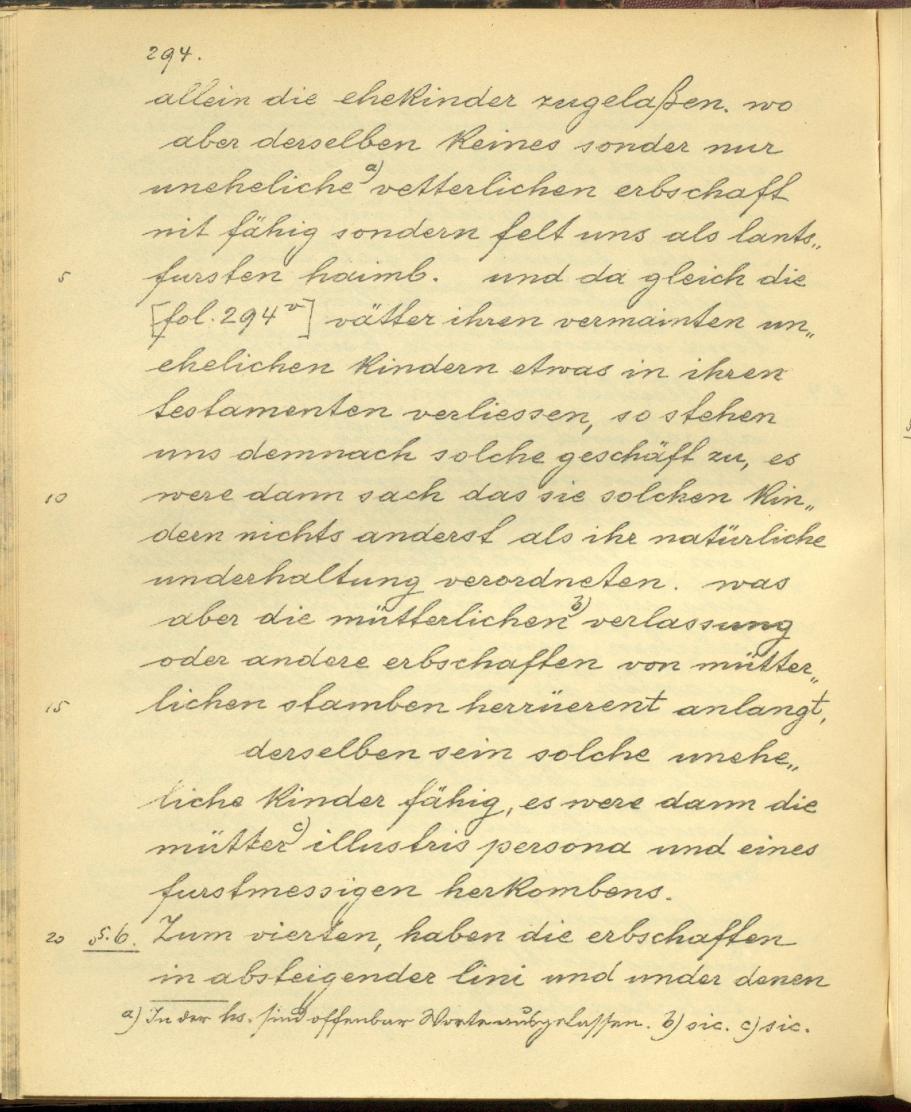 294.
allein die ehekinder zugelaßen. wo
aber derselben keines sonder nur
uneheliche a) vetterlichen erbschaft
nit fähig sondern felt uns als lants„
5 fursten haimb. und da gleich die
[fol. 294v] vätter ihren vermainten un„
ehelichen kindern etwas in ihren
testamenten verliessen, so stehen
uns demnach solche geschäft zu, es
10 were dann sach das sie solchen kin„
dern nichts anderst als ihr natürliche
underhaltung verordneten. was
aber die mütterlichen b) verlassung
oder andere erbschaften von mütter„
15 lichen stamben herrüerent anlangt,
derselben sein solche unehe„
liche kinder fähig, es were dann die
mütter c) illustris persona und eines
furstmessigen herkombens.
20 §.6. Zum vierten, haben die erbschaften
in absteigender lini und under denen
a) In der hs. sind offenbar Worte ausgelassen. b) sic. c) sic.